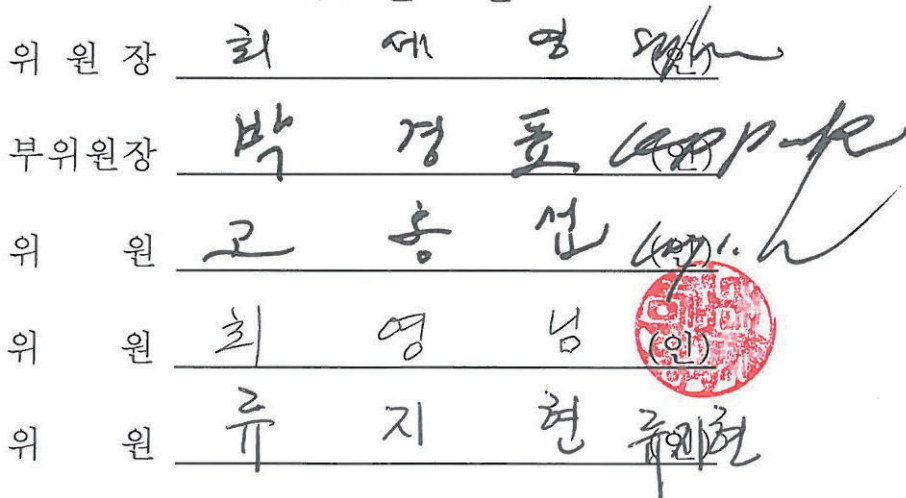 위 원 장 최 세 영 (인)
부위원장 박 경 표 (인)
위 원 고 홍 섭 (인)
위 원 최 영 님 (인)
위 원 류 지 현 (인) 류지현